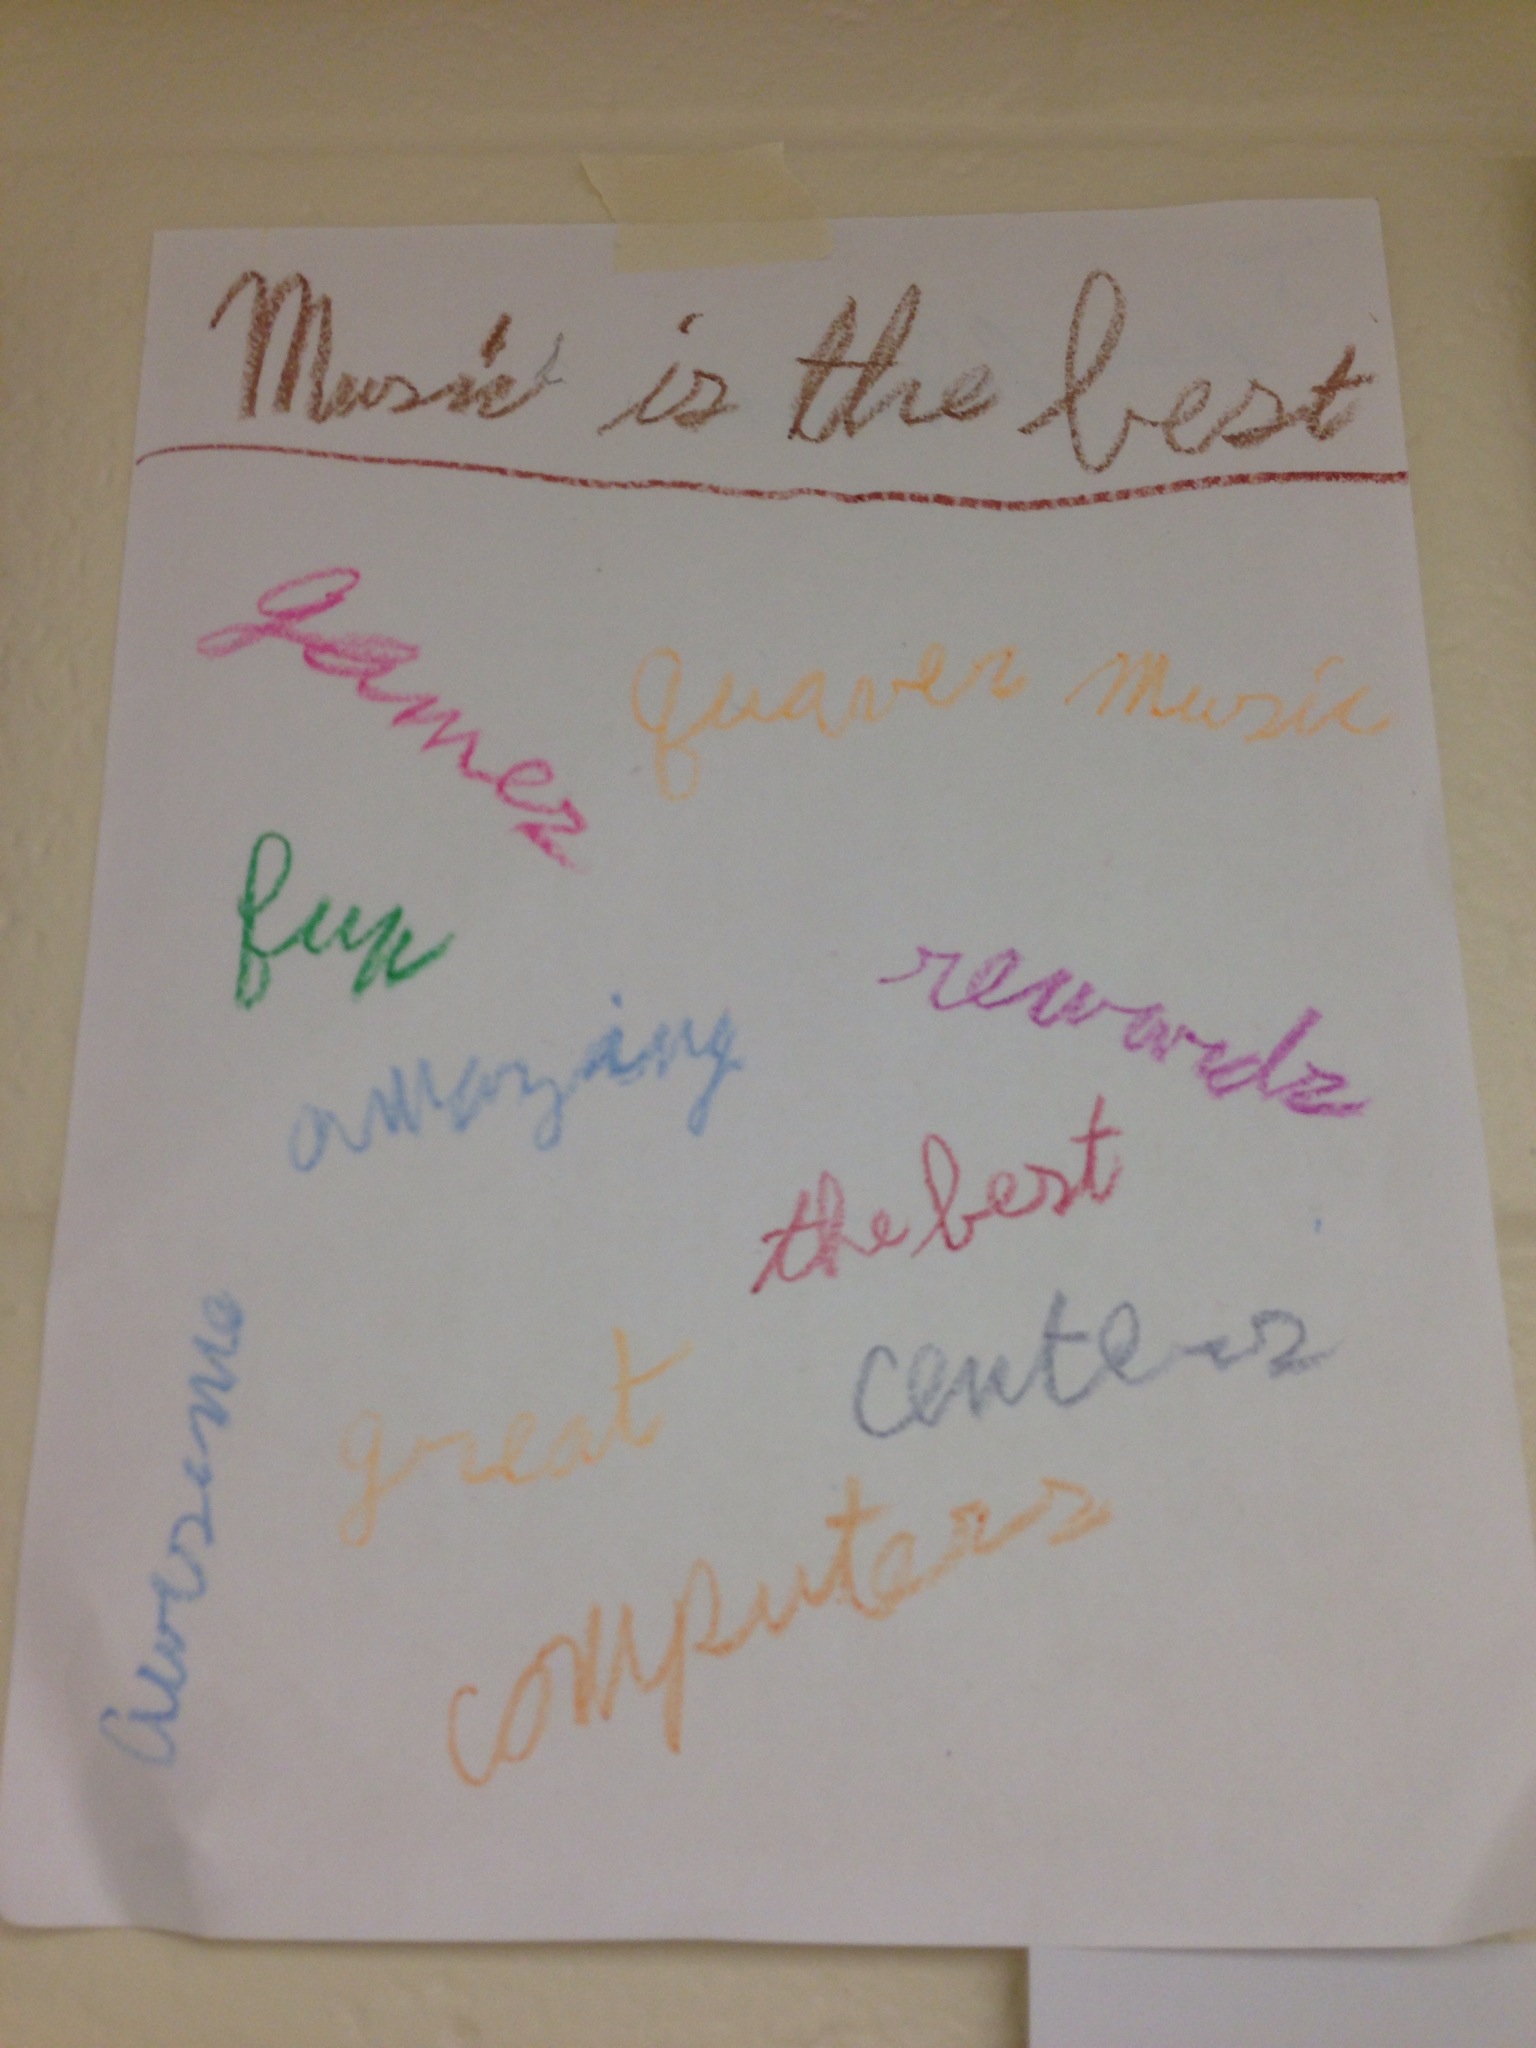 Music is the best
games
quaver music
fun
rewards
amazing
the best
awesome
great
centers
computers